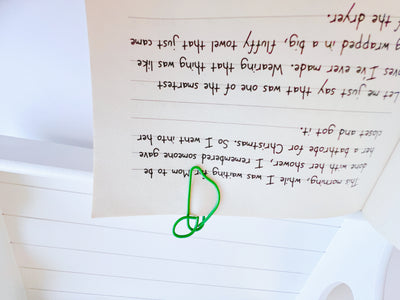 This morning, while I was waiting for Mom to be
done with her shower, I remembered someone gave
her a bathrobe for Christmas. So I went into her
closet and got it.
Let me just say that was one of the smartest
I've ever made. Wearing that thing was like
wrapped in a big, fluffy towel that just came
the dryer.